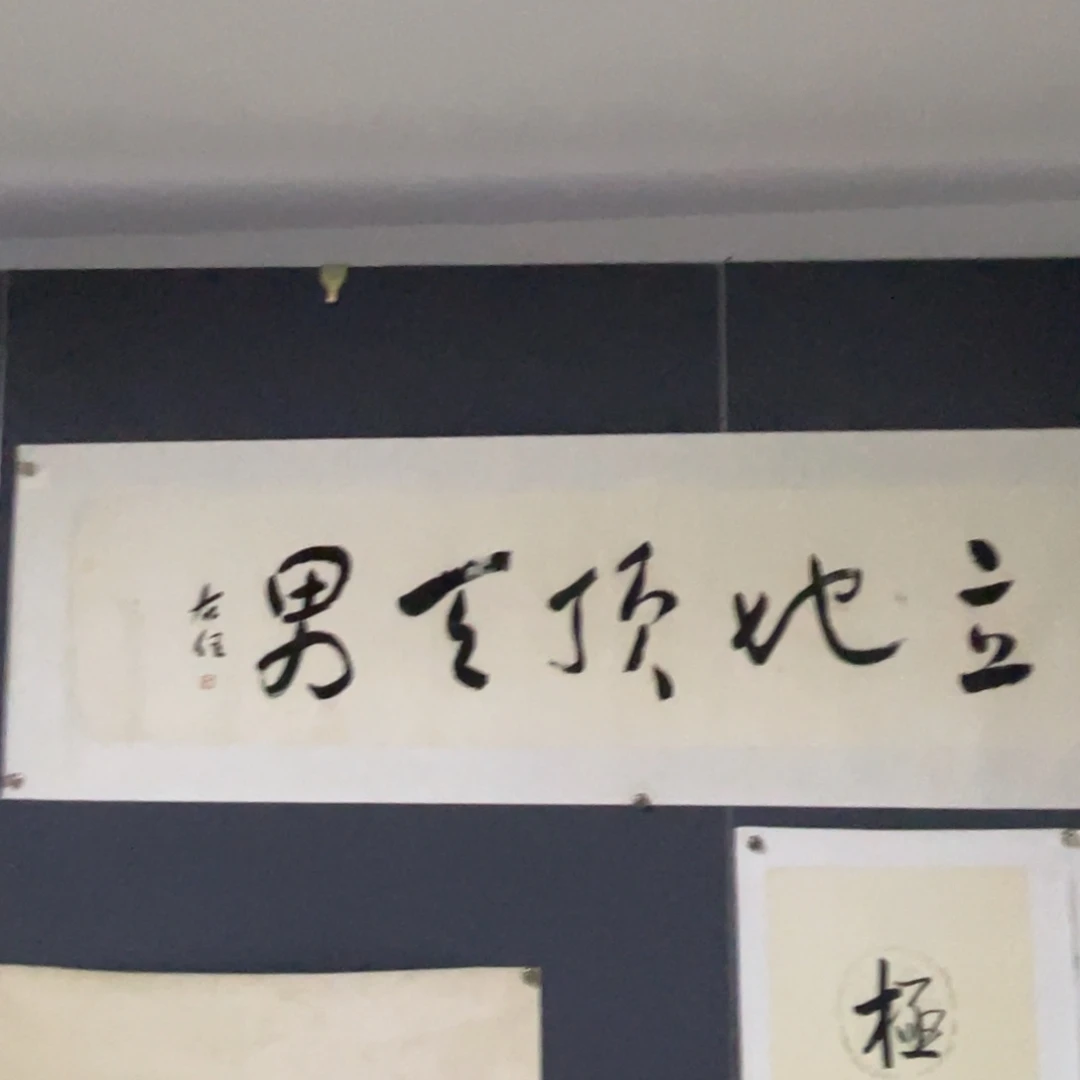 立地頂天男
右任
極